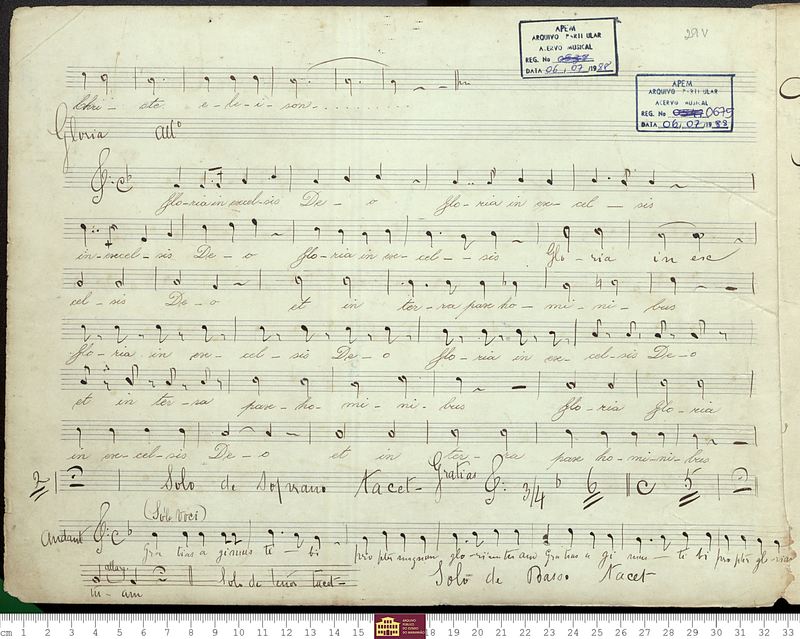 29V
APEM
ARQUIVO PARTICULAR
ACERVO MUSICAL
REG. No
DATA 06, 07, 1988
APEM
ARQUIVO PARTICULAR
ACERVO MUSICAL
REG. No 0679
DATA 06, 07, 1988
Chri - ste e - le - i - son
Gloria All.º
Glo-ria in excel-sis De - o Glo - ria in ex - cel - sis
in-excel-sis De - o Glo-ria in ex-cel - sis Glo - ria in exc
cel - sis De - o et in ter-ra pax ho - mi - ni - bus
Glo - ria in ex - cel - sis De - o Glo - ria in ex - cel-sis De-o
et in ter-ra pax - ho - mi - ni - bus Glo - ria Glo - ria
in ex-cel-sis De - o et in ter - ra pax ho-mi-ni-bus
2 Solo de Soprano Tacet - Gratias 3/4 6 C 5
(Solo Voci)
Andant Gra tias a gimus te - bi pro pter magnam glo-riam tu am Gratias a gi mus - te bi pro pter glo-riam
tu - am Solo de Tenor tacet - Solo de Basso Tacet
cm 1 2 3 4 5 6 7 8 9 10 11 12 13 14 15
ARQUIVO PÚBLICO DO ESTADO DO MARANHÃO
18 19 20 21 22 23 24 25 26 27 28 29 30 31 32 33